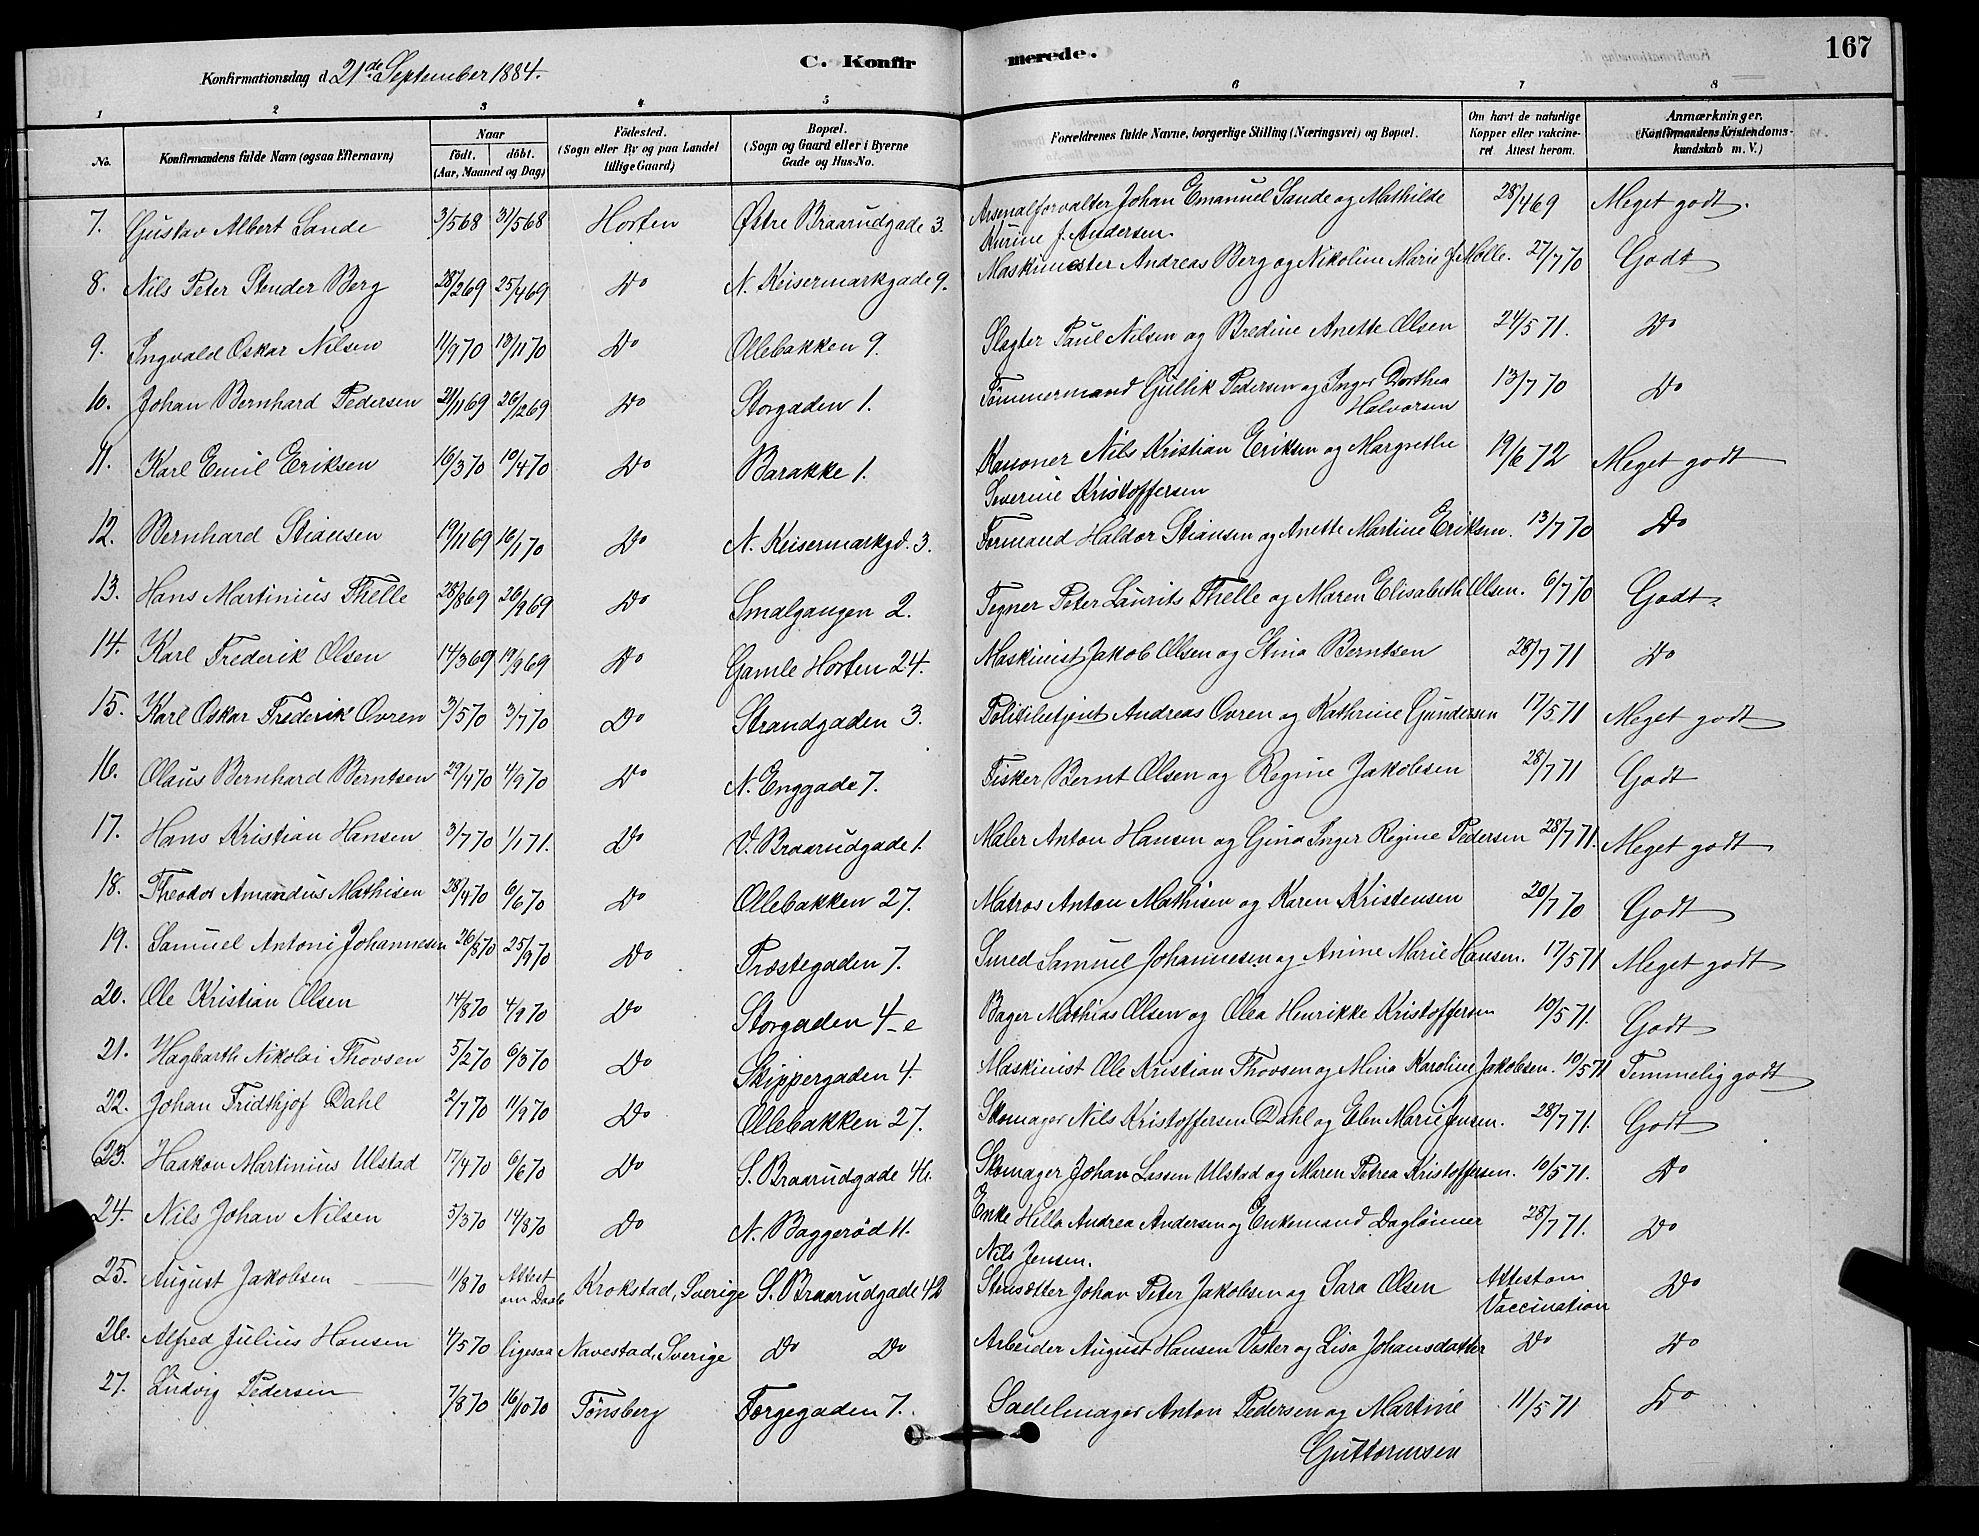 Konfirmationsdag d. 21de September 1884.
C. Konfirmerede.
167
1 2 3 4 5 6 7 8
No.
Konfirmandens fulde Navn (ogsaa Efternavn)
Naar
født. døbt.
(Aar, Maaned og Dag)
Fødested.
(Sogn eller By og paa Landet
tillige Gaard)
Bopæl.
(Sogn og Gaard eller i Byerne
Gade og Hus-No.
Forældrenes fulde Navne, borgerlige Stilling (Næringsvei) og Bopæl.
Om havt de naturlige
Kopper eller vakcine-
ret. Attest herom.
Anmærkninger.
(Konfirmandens Kristendoms-
kundskab m. V.)
7. Gustav Albert Sande 3/5 68 31/5 68 Horten Østre Braarudgade 3. Arsenalforvalter Johan Emanuel Sande og Mathilde 28/4 69 Meget godt.
Kurine f. Andersen.
8. Nils Peter Stender Berg 28/2 69 25/4 69 Do N. Keisermarkgade 9. Maskinmester Andreas Berg og Nikoline Marie f. Molle. 27/7 70 Godt
9. Ingvald Oskar Nilsen 11/9 70 13/11 70 Do Ollebakken 9. Slagter Paul Nilsen og Bredine Anette Olsen 24/5 71. Do
10. Johan Bernhard Pedersen 21/11 69 26/12 69 Do Storgaden 1. Tømmermand Gullik Pedersen og Inger Dorthea 13/7 70 Do
Halvorsen
11. Karl Emil Eriksen 16/3 70 10/4 70 Do Barakke 1. Kanoner Nils Kristian Eriksen og Margrethe 19/6 72 Meget godt
Severine Kristoffersen
12. Bernhard Stiansen 19/11 69 16/1 70 Do N. Keisermarkgd. 3. Formand Haldor Stiansen og Anette Martine Eriksen. 13/7 70 Do
13. Hans Martinius Thelle 28/8 69 26/9 69 Do Smalgangen 2. Tegner Peter Laurits Thelle og Maren Elisabeth Olsen. 6/7 70 Godt.
14. Karl Frederik Olsen 14/3 69 19/9 69 Do Gamle Horten 24. Maskinist Jakob Olsen og Stina Berntsen 28/7 71 Do
15. Karl Oskar Frederik Ovren 3/5 70 3/7 70 Do Strandgaden 3. Politibetjent Andreas Ovren og Kathrine Gundersen 17/5 71 Meget godt
16. Olaus Bernhard Berntsen 29/4 70 4/9 70 Do N. Enggade 7. Fisker Bernt Olsen og Regine Jakobsen 28/7 71 Godt
17. Hans Kristian Hansen 3/7 70 1/1 71. Do V. Braarudgade 1. Maler Anton Hansen og Gina Inger Regine Pedersen 28/7 71. Meget godt
18. Theodor Amandus Mathisen 28/4 70 6/6 70 Do Ollebakken 27. Matros Anton Mathisen og Karen Kristensen 20/7 70 Godt
19. Samuel Antoni Johannesen 26/5 70 25/9 70 Do Præstegaden 7. Smed Samuel Johannesen og Anine Marie Hansen. 17/5 71 Meget godt
20. Ole Kristian Olsen 14/8 70 4/9 70 Do Storgaden 4-e Bager Mathias Olsen og Olea Henrikke Kristoffersen 10/5 71. Godt
21. Hagbarth Nikolai Thovsen 5/2 70 6/3 70 Do Skippergaden 4. Maskinist Ole Kristian Thovsen og Mina Karoline Jakobsen. 10/5 71 Temmelig godt
22. Johan Fridthjof Dahl 2/7 70 11/9 70 Do Ollebakken 27. Skomager Nils Kristoffersen Dahl og Elen Marie Jensen. 28/7 71. Godt
23. Haakon Martinius Ulstad 17/4 70 6/6 70 Do S. Braarudgade 41. Skomager Johan Lassen Ulstad og Maren Petrea Kristoffersen. 10/5 71. Do
24. Nils Johan Nilsen 5/3 70 14/8 70 Do N. Baggerød 11. Enke Hella Andrea Andersen og Enkemand Daglønner 28/7 71. Do
Nils Jensen.
25. August Jakobsen 11/8 70 Attest om Daab Krokstad, Sverige S. Braarudgade 42 Stensætter Johan Peter Jakobsen og Sara Olsen Attest om Vaccination Do
26. Alfred Julius Hansen 4/5 70 ligesaa Navestad, Sverige Do Do Arbeider August Hansen Vaster og Lisa Johansdatter Do Do
27. Ludvig Pedersen 7/8 70 16/10 70 Tønsberg Torgegaden 7. Sadelmager Anton Pedersen og Martine 11/5 71 Do
Guttormsen